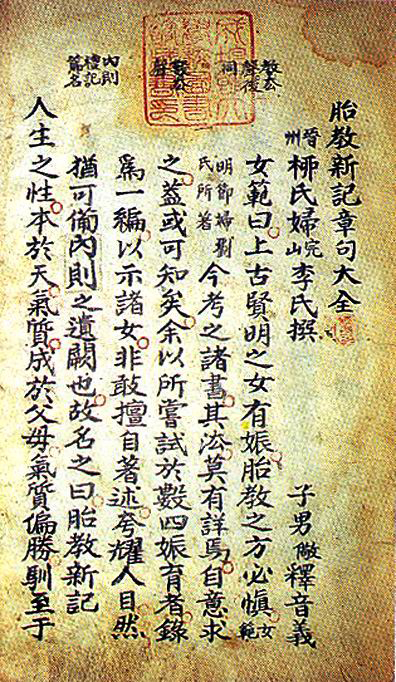 胎教新記章句大全
晉州柳氏婦完山李氏撰 子男儆釋音義
教去聲後同
女範曰上古賢明之女有娠胎教之方必愼女範
明節婦劉氏所著今考之諸書其法莫有詳焉自意求
之盖或可知矣余以所嘗試於數四娠育者錄
爲一編以示諸女非敢擅自著述夸耀人目然
內則禮記篇名
猶可備內則之遺闕也故名之曰胎教新記
人生之性本於天氣質成於父母氣質偏勝馴至于